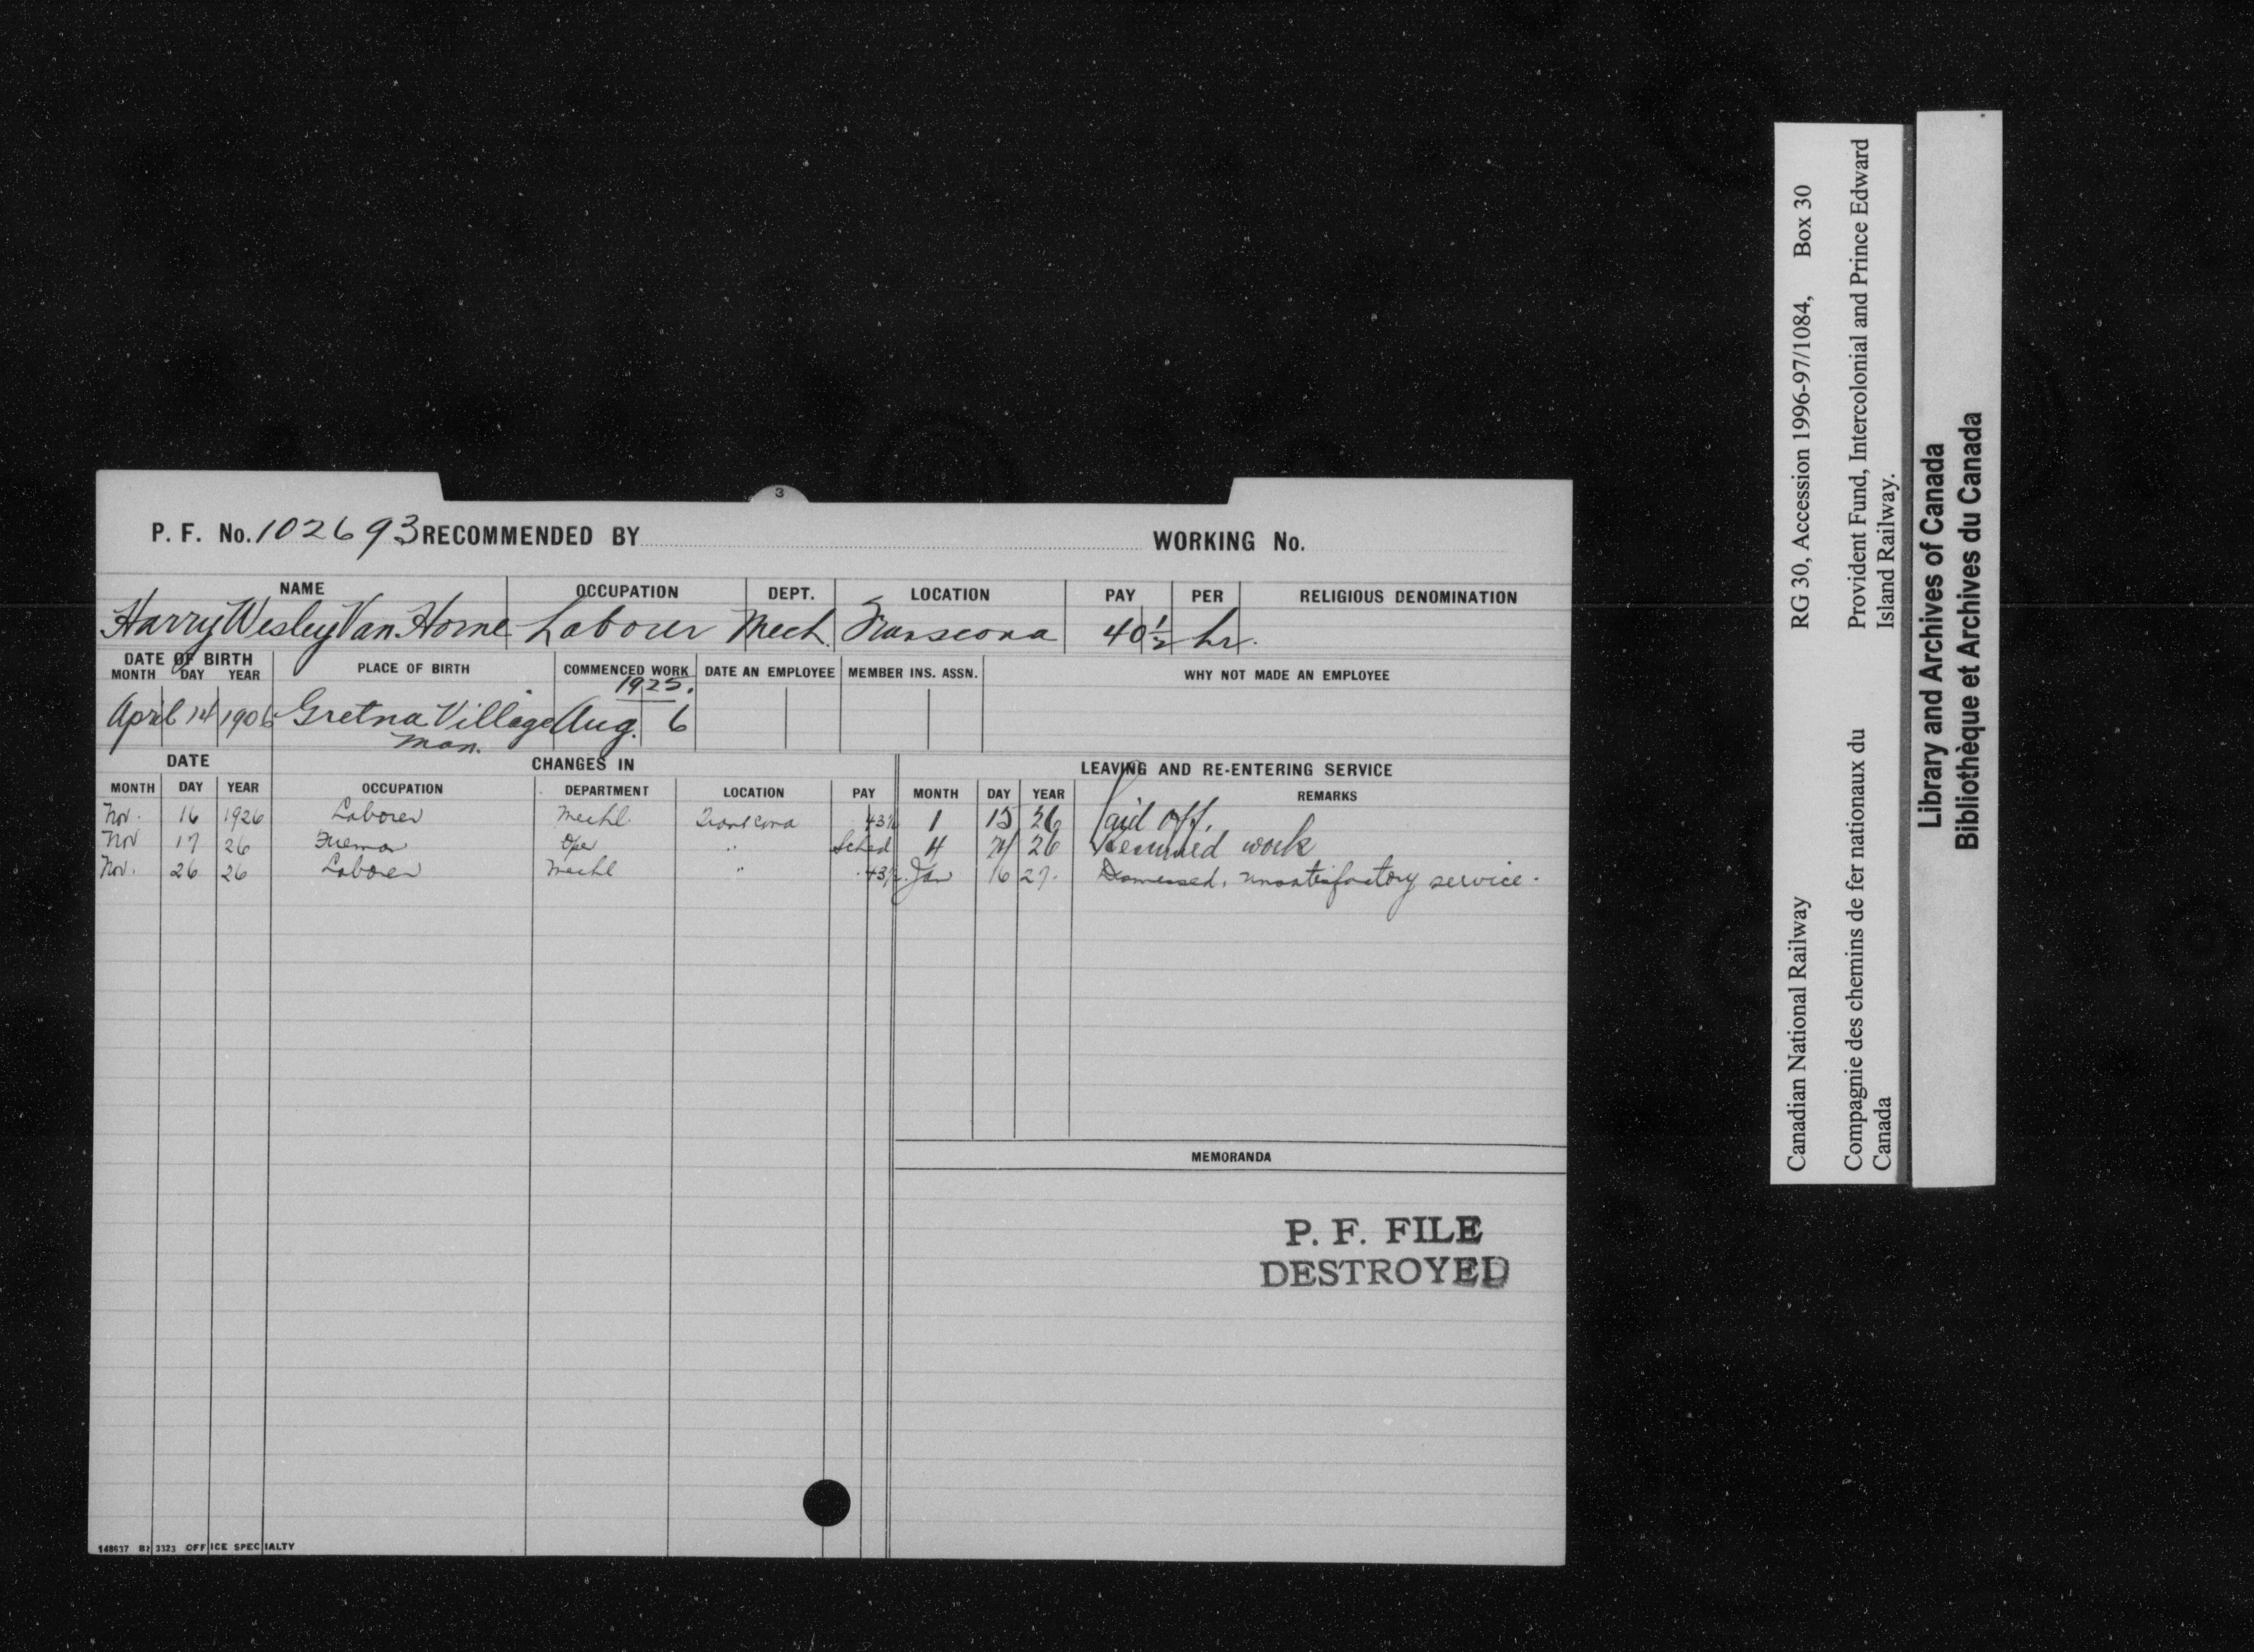 3
P. F. No. 102693 RECOMMENDED BY WORKING No.
NAME OCCUPATION DEPT. LOCATION PAY PER RELIGIOUS DENOMINATION
Harry Wesley Van Horne Labourer Mech. Transcona 40½ hr.
DATE OF BIRTH PLACE OF BIRTH COMMENCED WORK DATE AN EMPLOYEE MEMBER INS. ASSN. WHY NOT MADE AN EMPLOYEE
MONTH DAY YEAR
1925.
April 14 1906 Gretna Village Aug. 6
Man.
DATE CHANGES IN LEAVING AND RE-ENTERING SERVICE
MONTH DAY YEAR OCCUPATION DEPARTMENT LOCATION PAY MONTH DAY YEAR REMARKS
Nov. 16 1926 Laborer Mechl. Transcona 43½ 1 15 26 Laid off.
Nov 17 26 Fireman Oper " Sched 26 Resumed work
Nov. 26 26 Laborer Mechl " 43½ Jan 16 27. Dismissed, unsatisfactory service.
MEMORANDA
P. F. FILE
DESTROYED
148637 3323 OFFICE SPECIALTY
Canadian National Railway RG 30, Accession 1996-97/1084, Box 30
Compagnie des chemins de fer nationaux du Provident Fund, Intercolonial and Prince Edward
Canada Island Railway.
Library and Archives of Canada
Bibliothèque et Archives du Canada